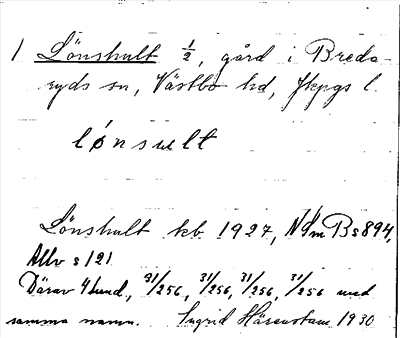 1 Lönshult 1/2, gård i Breda-
ryds sn, Västbo hd, Jkpgs l.
lǿnsult
Lönshult kb 1927, NSmB s 894,
Allv s 121
Därav 4 sund, 31/256, 31/256, 31/256 med
samma namn. Ingrid Härenstam 1930